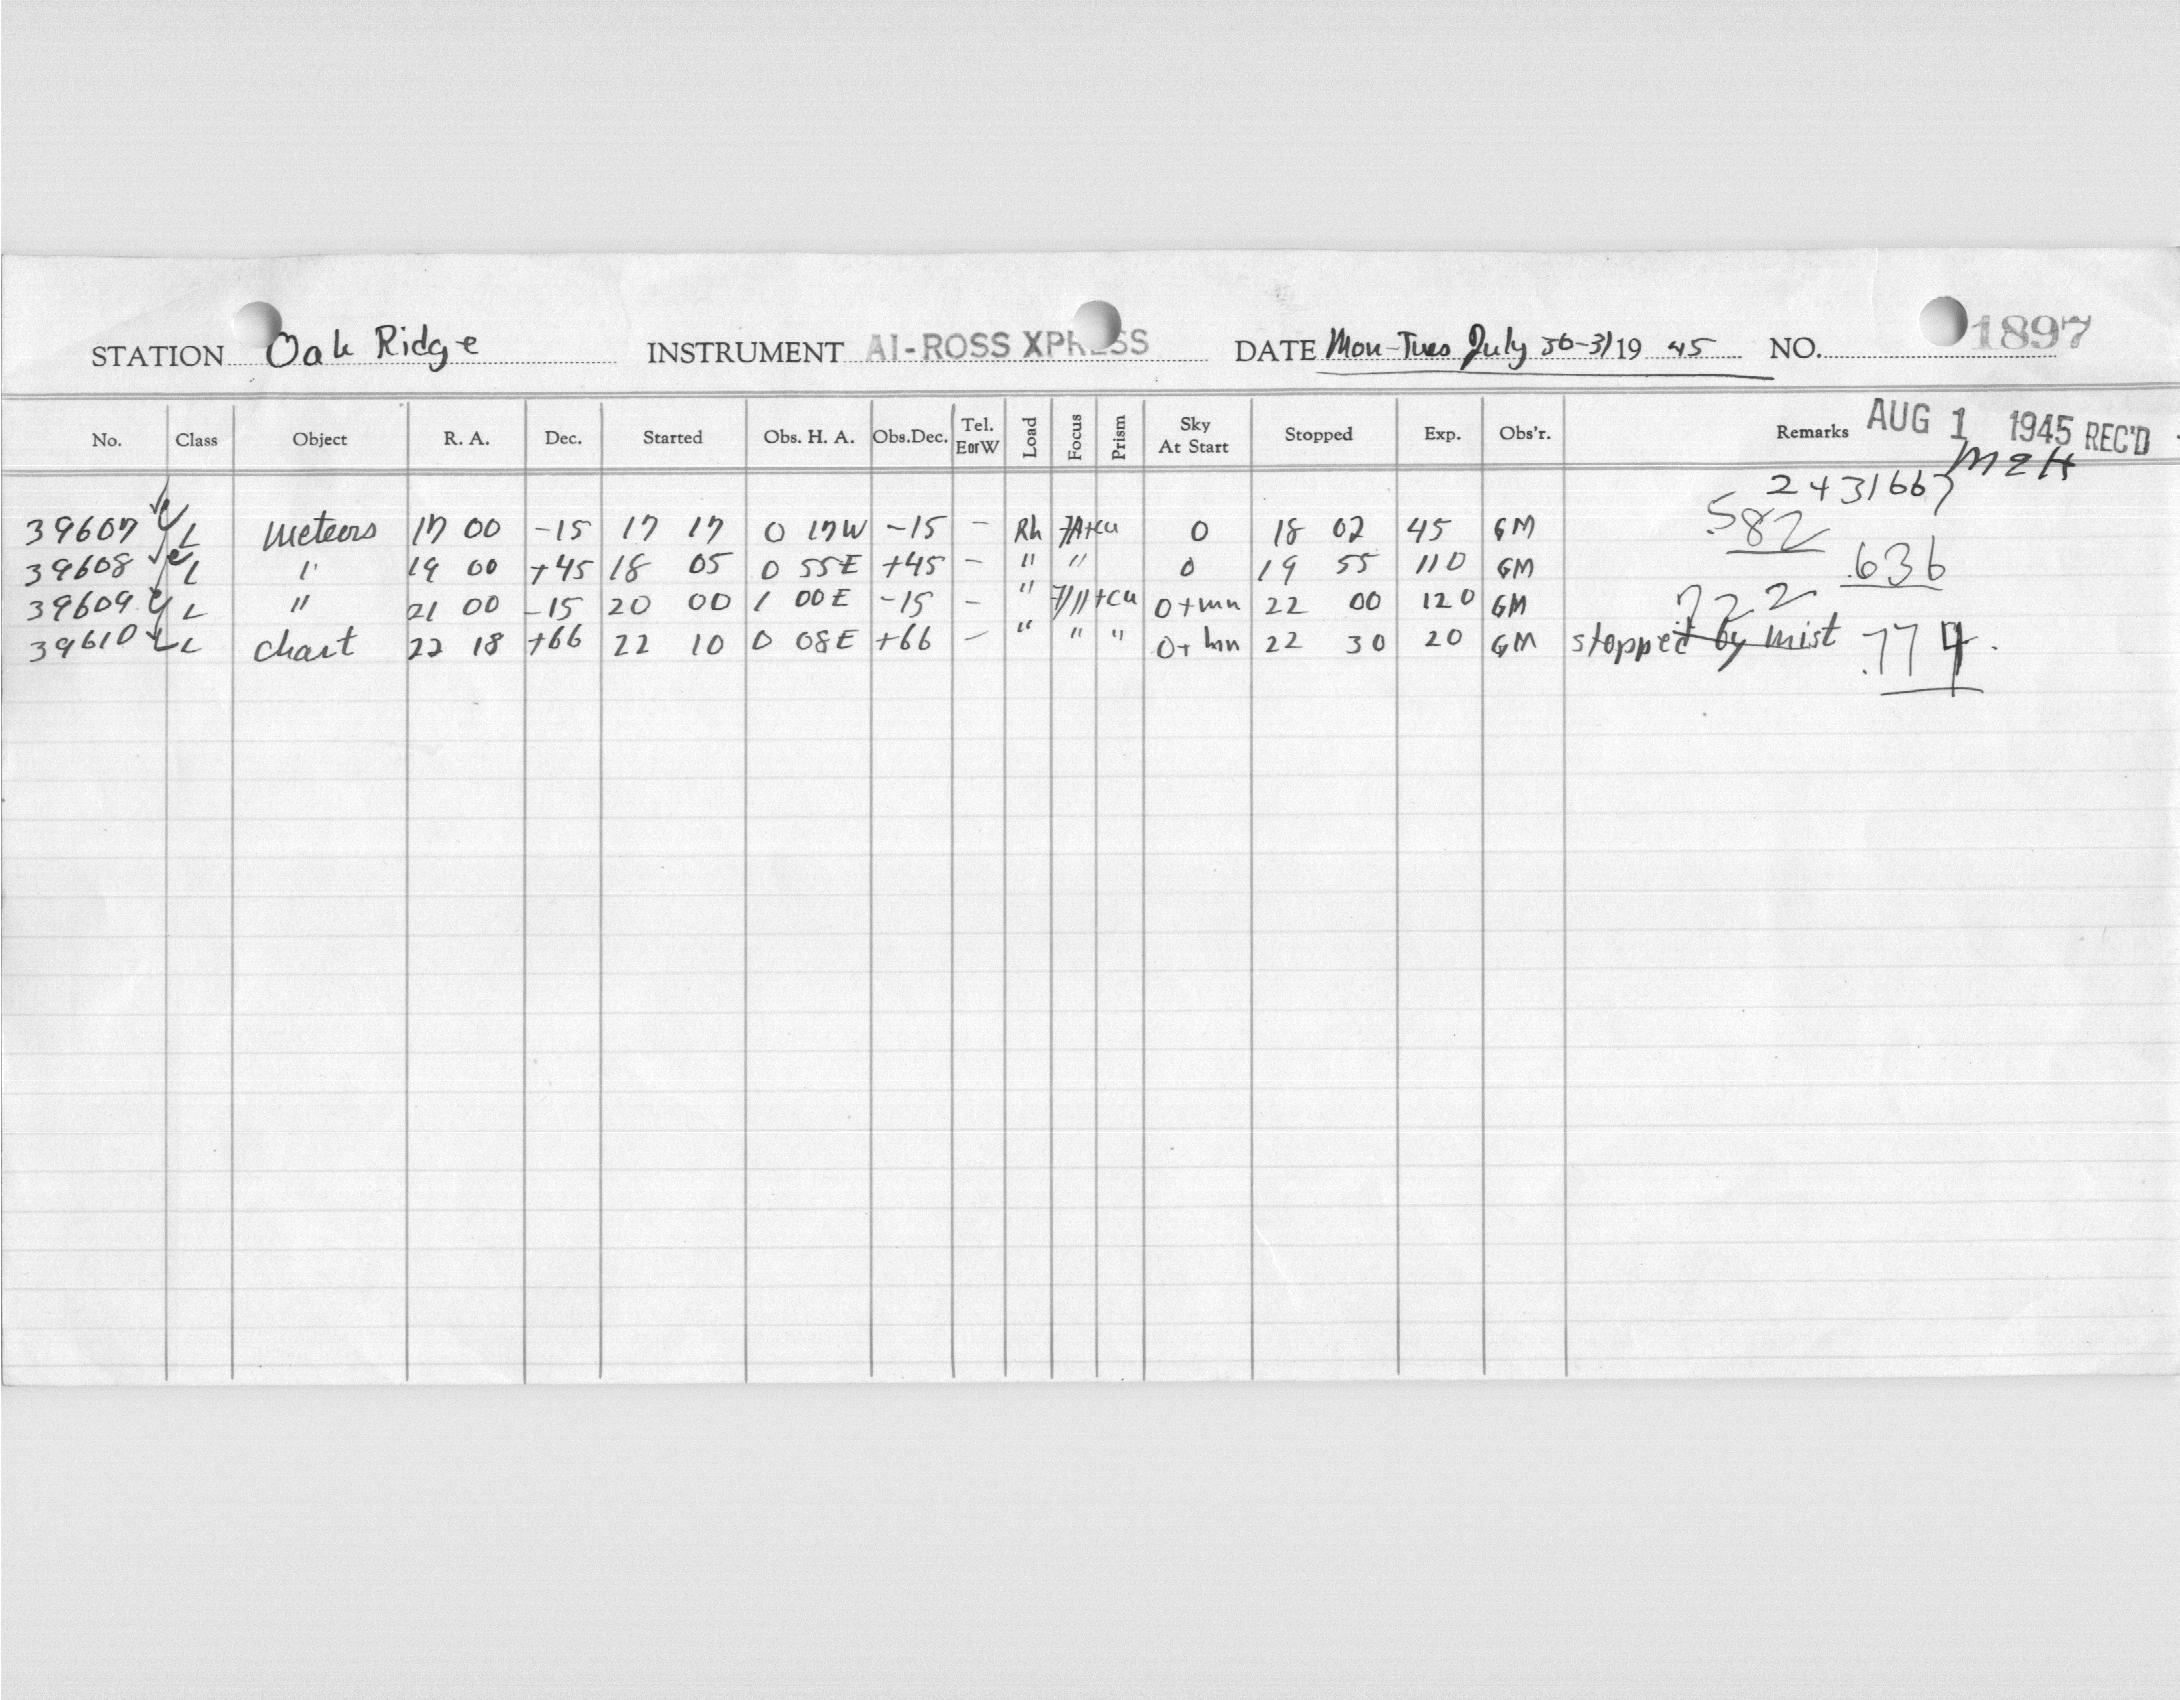 STATION Oak Ridge INSTRUMENT AI-ROSS XPRESS DATE Mon-Tues July 30-31 19 45 NO. 1897
No. Class Object R. A. Dec. Started Obs. H. A. Obs.Dec. Tel. E or W Load Focus Prism Sky At Start Stopped Exp. Obs'r. Remarks AUG 1 1945 REC'D
2431667
39607 L meteors 17 00 -15 17 17 0 17W -15 - Rh 0 18 02 45 GM .582
39608 L " 19 00 +45 18 05 0 55E +45 - " " 0 19 55 110 GM .636
39609 L " 21 00 -15 20 00 1 00E -15 - " 0+mn 22 00 120 GM .722
39610 L chart 22 18 +66 22 10 0 08E +66 - " " " 0+mn 22 30 20 GM stopped by mist .774